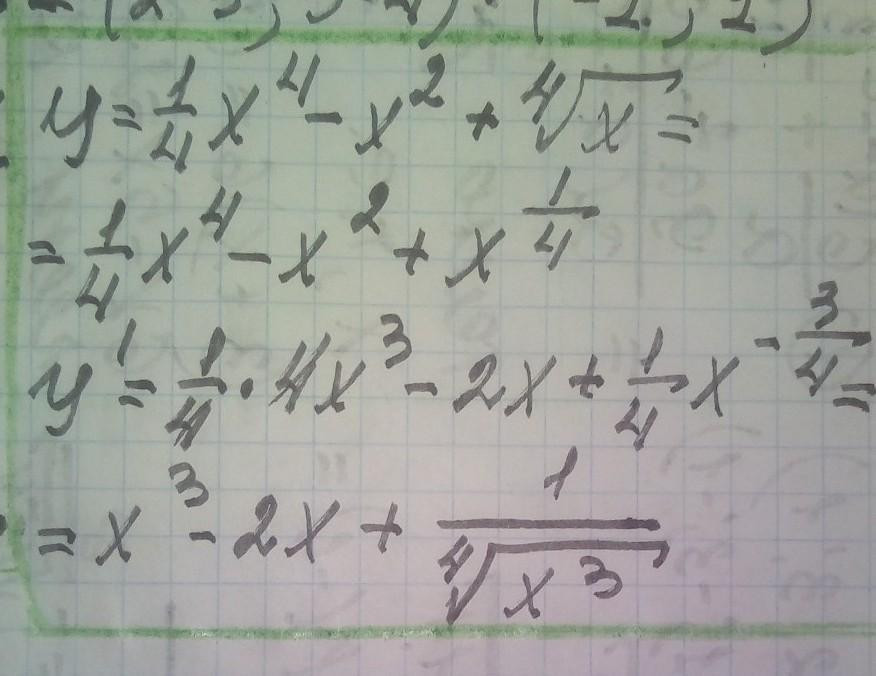 y = 1/4 x⁴ - x² + ∜x =
= 1/4 x⁴ - x² + x^(1/4)
y' = 1/4 · 4x³ - 2x + 1/4 x^(-3/4) =
= x³ - 2x + 1/∜(x³)